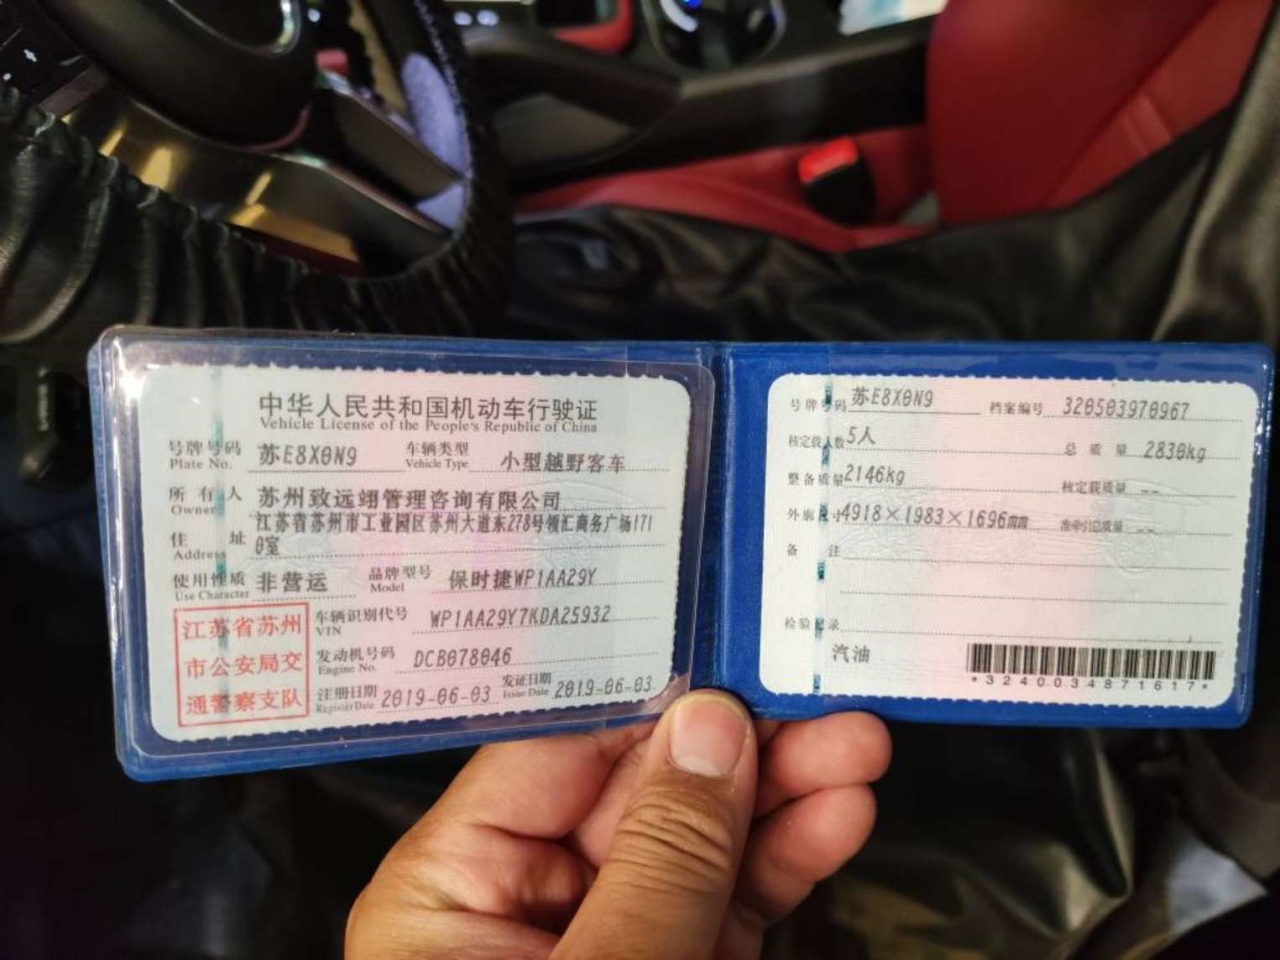 中华人民共和国机动车行驶证
Vehicle License of the People's Republic of China
号牌号码 苏E8X0N9 车辆类型 小型越野客车
Plate No. Vehicle Type
所有人 苏州致远翊管理咨询有限公司
Owner
住址 江苏省苏州市工业园区苏州大道东278号领汇商务广场171
Address 0室
使用性质 非营运 品牌型号 保时捷WP1AA29Y
Use Character Model
江苏省苏州
市公安局交
通警察支队
车辆识别代号 WP1AA29Y7KDA25932
VIN
发动机号码 DCB078046
Engine No.
注册日期 2019-06-03 发证日期 2019-06-03
Register Date Issue Date
号牌号码 苏E8X0N9 档案编号 320503970967
核定载人数 5人 总质量 2830kg
整备质量 2146kg 核定载质量 --
外廓尺寸 4918×1983×1696mm 准牵引总质量 --
备注
检验记录
汽油
*3240034871617*